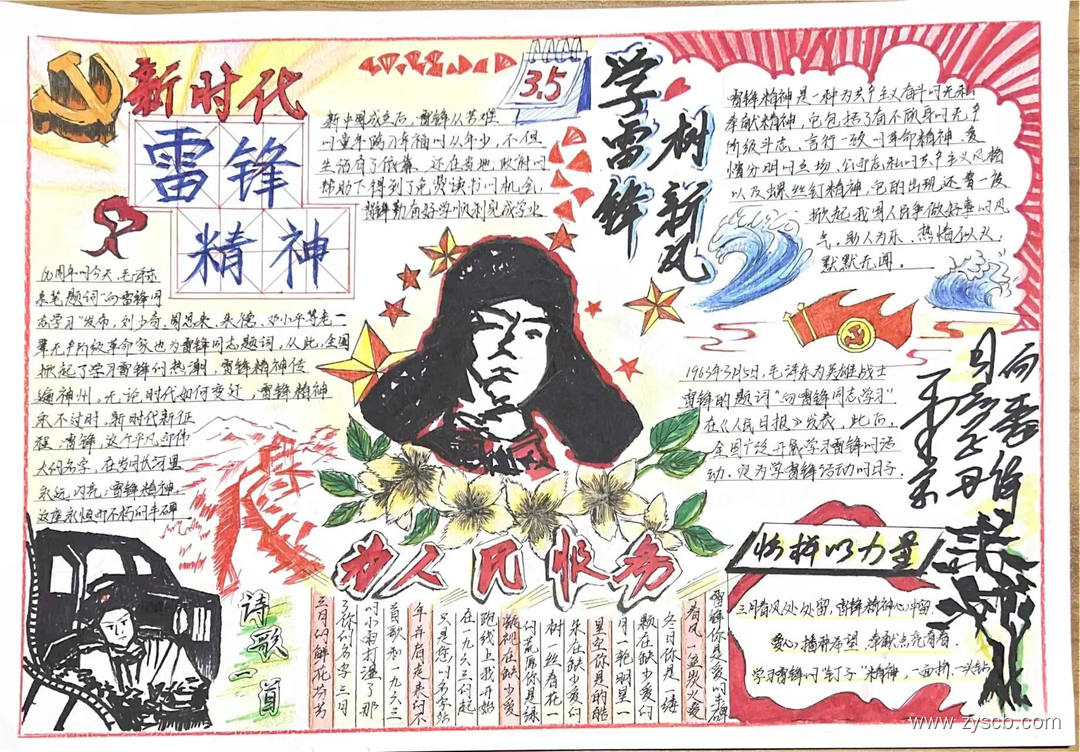 新时代
雷锋
精神
3.5
学雷锋
树新风
新中国成立后,雷锋从苦难
的童年踏入幸福的少年,不但
生活有了依靠,还在当地政府的
帮助下得到了免费读书的机会,
雷锋勤奋好学顺利完成学业
雷锋精神是一种为共产主义奋斗的无私
奉献精神,它包括了奋不顾身的无产
阶级斗志、言行一致的革命精神、爱
憎分明的立场、公而忘私的共产主义风格
以及螺丝钉精神,它的出现还曾一度
掀起我国人民争做好事的风
气,助人为乐、热情似火、
默默无闻。
60周年的今天,毛泽东
亲笔题词“向雷锋同
志学习”发布,刘少奇、周恩来、朱德、邓小平等老一
辈无产阶级革命家也为雷锋同志题词,从此,全国
掀起了学习雷锋的热潮,雷锋精神传
遍神州,无论时代如何变迁,雷锋精神
永不过时,新时代新征
程,雷锋,这个平凡而伟
大的名字,在岁月长河里
永远闪亮;雷锋精神,
这座永恒而不朽的丰碑
1963年3月5日,毛泽东为英雄战士
雷锋的题词“向雷锋同志学习”
在《人民日报》发表,此后,
全国广泛开展学习雷锋的活
动,定为学雷锋活动的日子。
向雷锋
同志学习
毛泽东
为人民服务
榜样的力量
三月春风处处留,雷锋精神心中留
爱心播种希望,奉献点亮青春
学习雷锋的“钉子”精神,一面挤,一头钻
诗歌一首
雷锋你是爱的丰碑
春风一盆炭火爱
冬日你是一缕
颗在缺少爱的
月一轮明里一
里里你是的皓
朱在缺少爱的
树一丝有花一
的荒原你是绿
凝视在缺少爱
跑线上我开始
在一九六三的起
只是您以名字站
年并肩走来的不
首歌和一九六三
的小雨打湿了那
了你的名字三月
三月的鲜花芬芳
www.zyscb.com